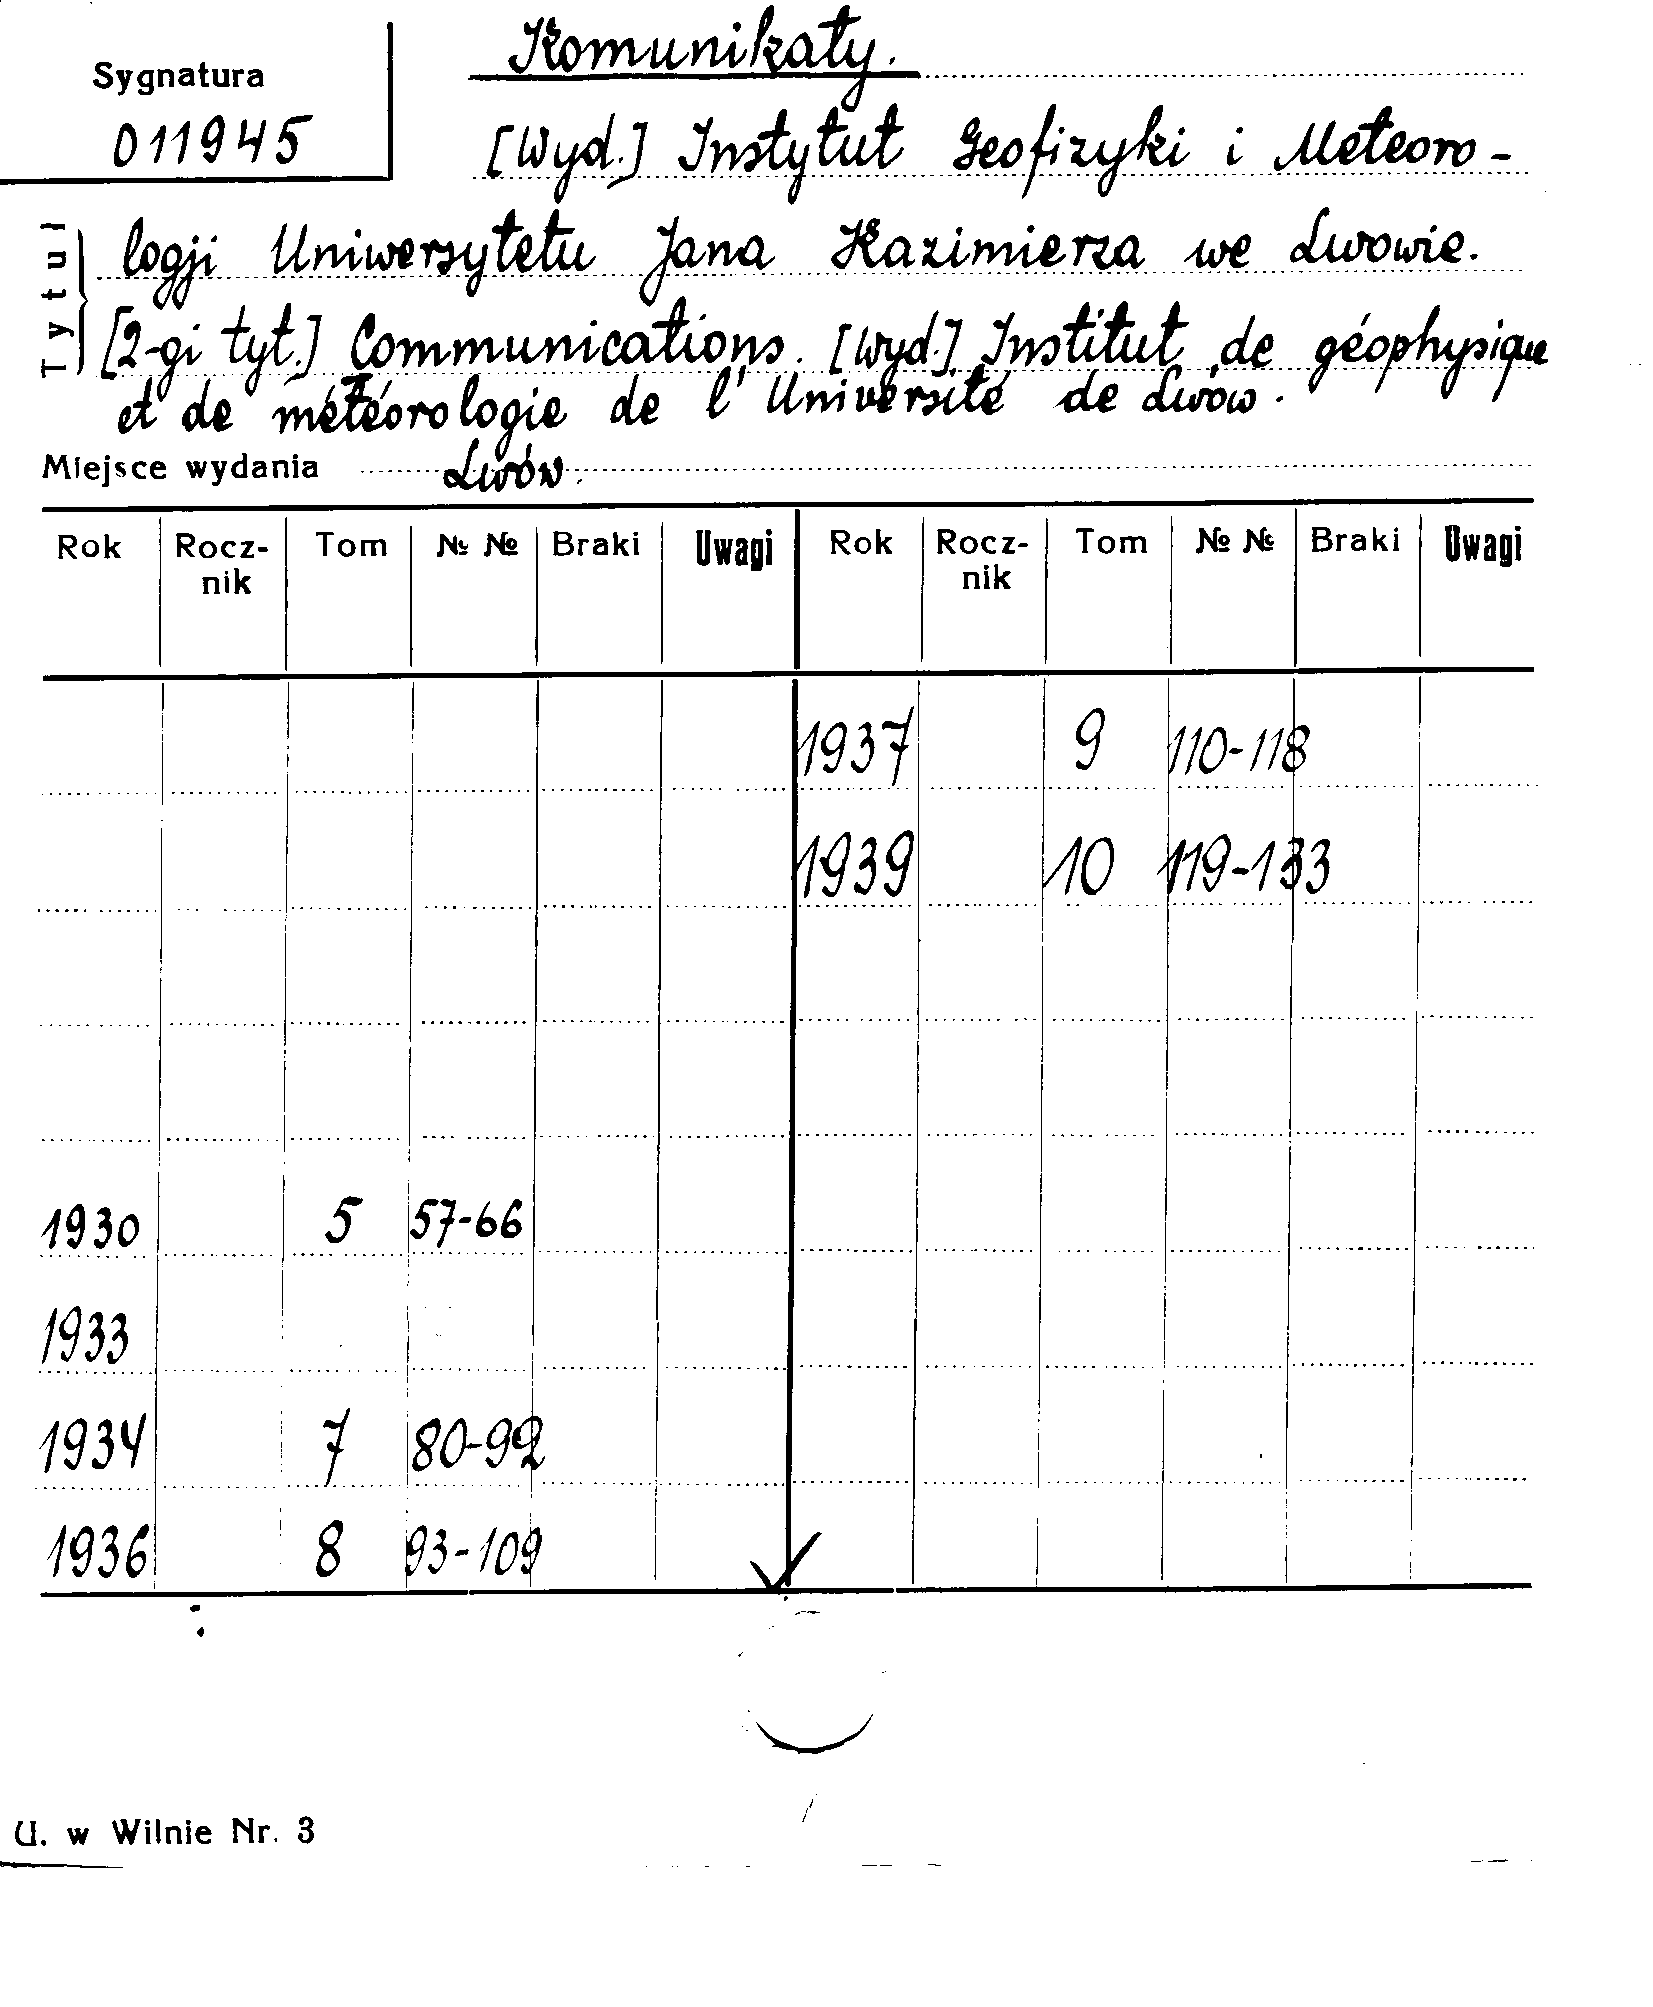 Komunikaty.
Sygnatura
011945
[Wyd.] Instytut Geofizyki i Meteoro-
Tytul
logji Uniwersytetu Jana Kazimierza we Lwowie.
[2-gi tyt.] Communications. [Wyd.] Institut de géophysique
et de météorologie de l'Université de Lwów.
Miejsce wydania Lwów.
Rok Rocz- Tom № № Braki Uwagi Rok Rocz- Tom № № Braki Uwagi
nik nik
1937 9 110-118
1939 10 119-133
1930 5 57-66
1933
1934 7 80-92
1936 8 93-109
U. w Wilnie Nr. 3